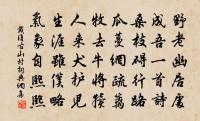 野老幽居處
成吾一首詩
桑枝礙行路
瓜蔓網疏籬
牧去牛將犢
人來犬護兒
生涯雖樸略
氣象自熙熙
戴復古山村詞典網集